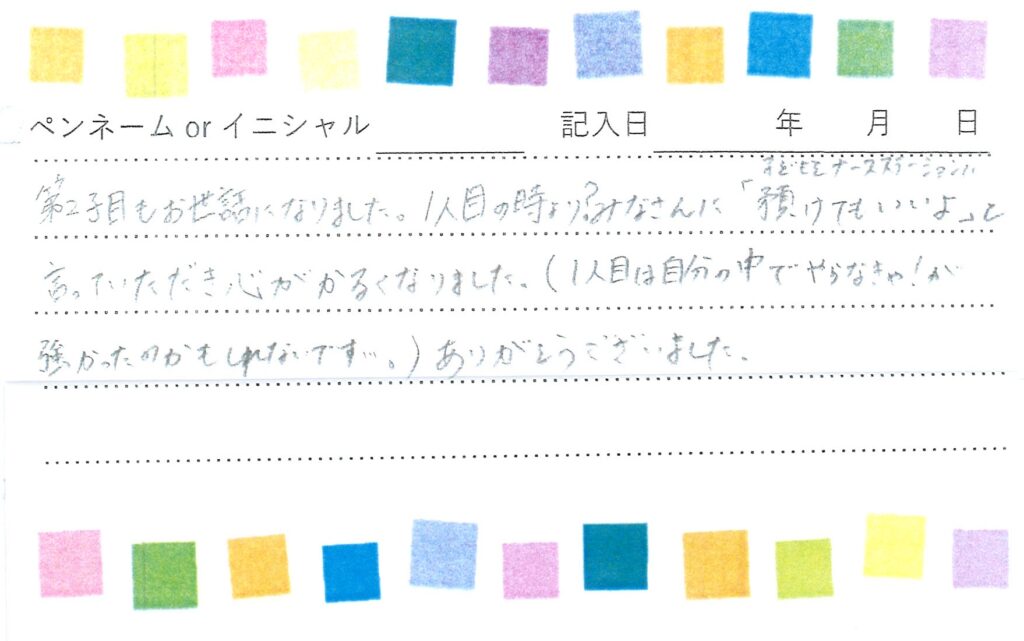 ペンネームorイニシャル 記入日 年 月 日
子どもをナースステーションに
第2子目もお世話になりました。1人目の時より?みなさんに「預けてもいいよ」と
言っていただき心がかるくなりました。(1人目は自分の中でやらなきゃ!が
強かったのかもしれないです…。)ありがとうございました。